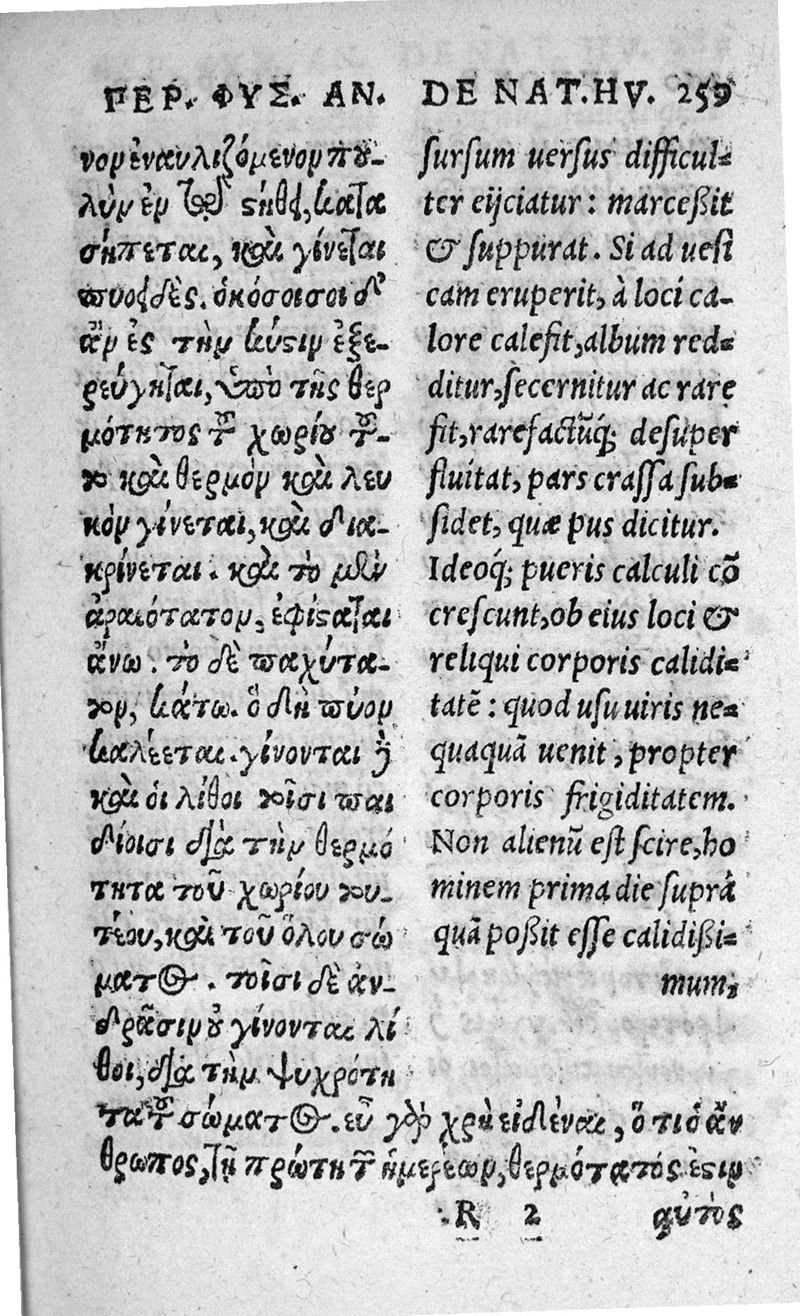 ΠΕΡ. ΦΥΣ. ΑΝ.
νον ἐναυλιζόμενον που-
λὺν ἐν τῷ στήθει, κατα
σήπεται, καὶ γίνεται
πυοειδές. ὁκόσοισοι δ'
ἂν ἐς τὴν κύστιν ἐξε-
ρεύγηται, ὑπὸ τῆς θερ
μότητος τοῦ χωρίου τοῦ-
το καὶ θερμὸν καὶ λευ
κὸν γίνεται, καὶ δια-
κρίνεται. καὶ τὸ μὲν
ἀραιότατον, ἐφίσταται
ἄνω. τὸ δὲ παχύτα-
τον, κάτω. ὃ δὴ πύον
καλέεται. γίνονται δὲ
καὶ οἱ λίθοι τοῖσι παι
δίοισι διὰ τὴν θερμό
τητα τοῦ χωρίου του-
τέου, καὶ τοῦ ὅλου σώ
ματος. τοῖσι δὲ ἀν-
δρᾶσιν οὐ γίνονται λί
θοι, διὰ τὴν ψυχρότη
τα τοῦ σώματος. εὖ γὰρ χρὴ εἰδέναι, ὅτι ὁ ἄν
θρωπος, τῇ πρώτῃ τῶν ἡμερέων, θερμότατός ἐστιν
DE NAT. HV. 259
sursum uersus difficul-
ter eijciatur: marceßit
& suppurat. Si ad uesi
cam eruperit, à loci ca-
lore calefit, album red-
ditur, secernitur ac rare
fit, rarefactũq́; desuper
fluitat, pars crassa sub-
sidet, quæ pus dicitur.
Ideoq́; pueris calculi cõ
crescunt, ob eius loci &
reliqui corporis calidi-
tatẽ: quod usu uiris ne-
quaquã uenit, propter
corporis frigiditatem.
Non alienũ est scire, ho
minem prima die suprà
quã poßit esse calidißi-
mum,
R 2 αὐτὸς